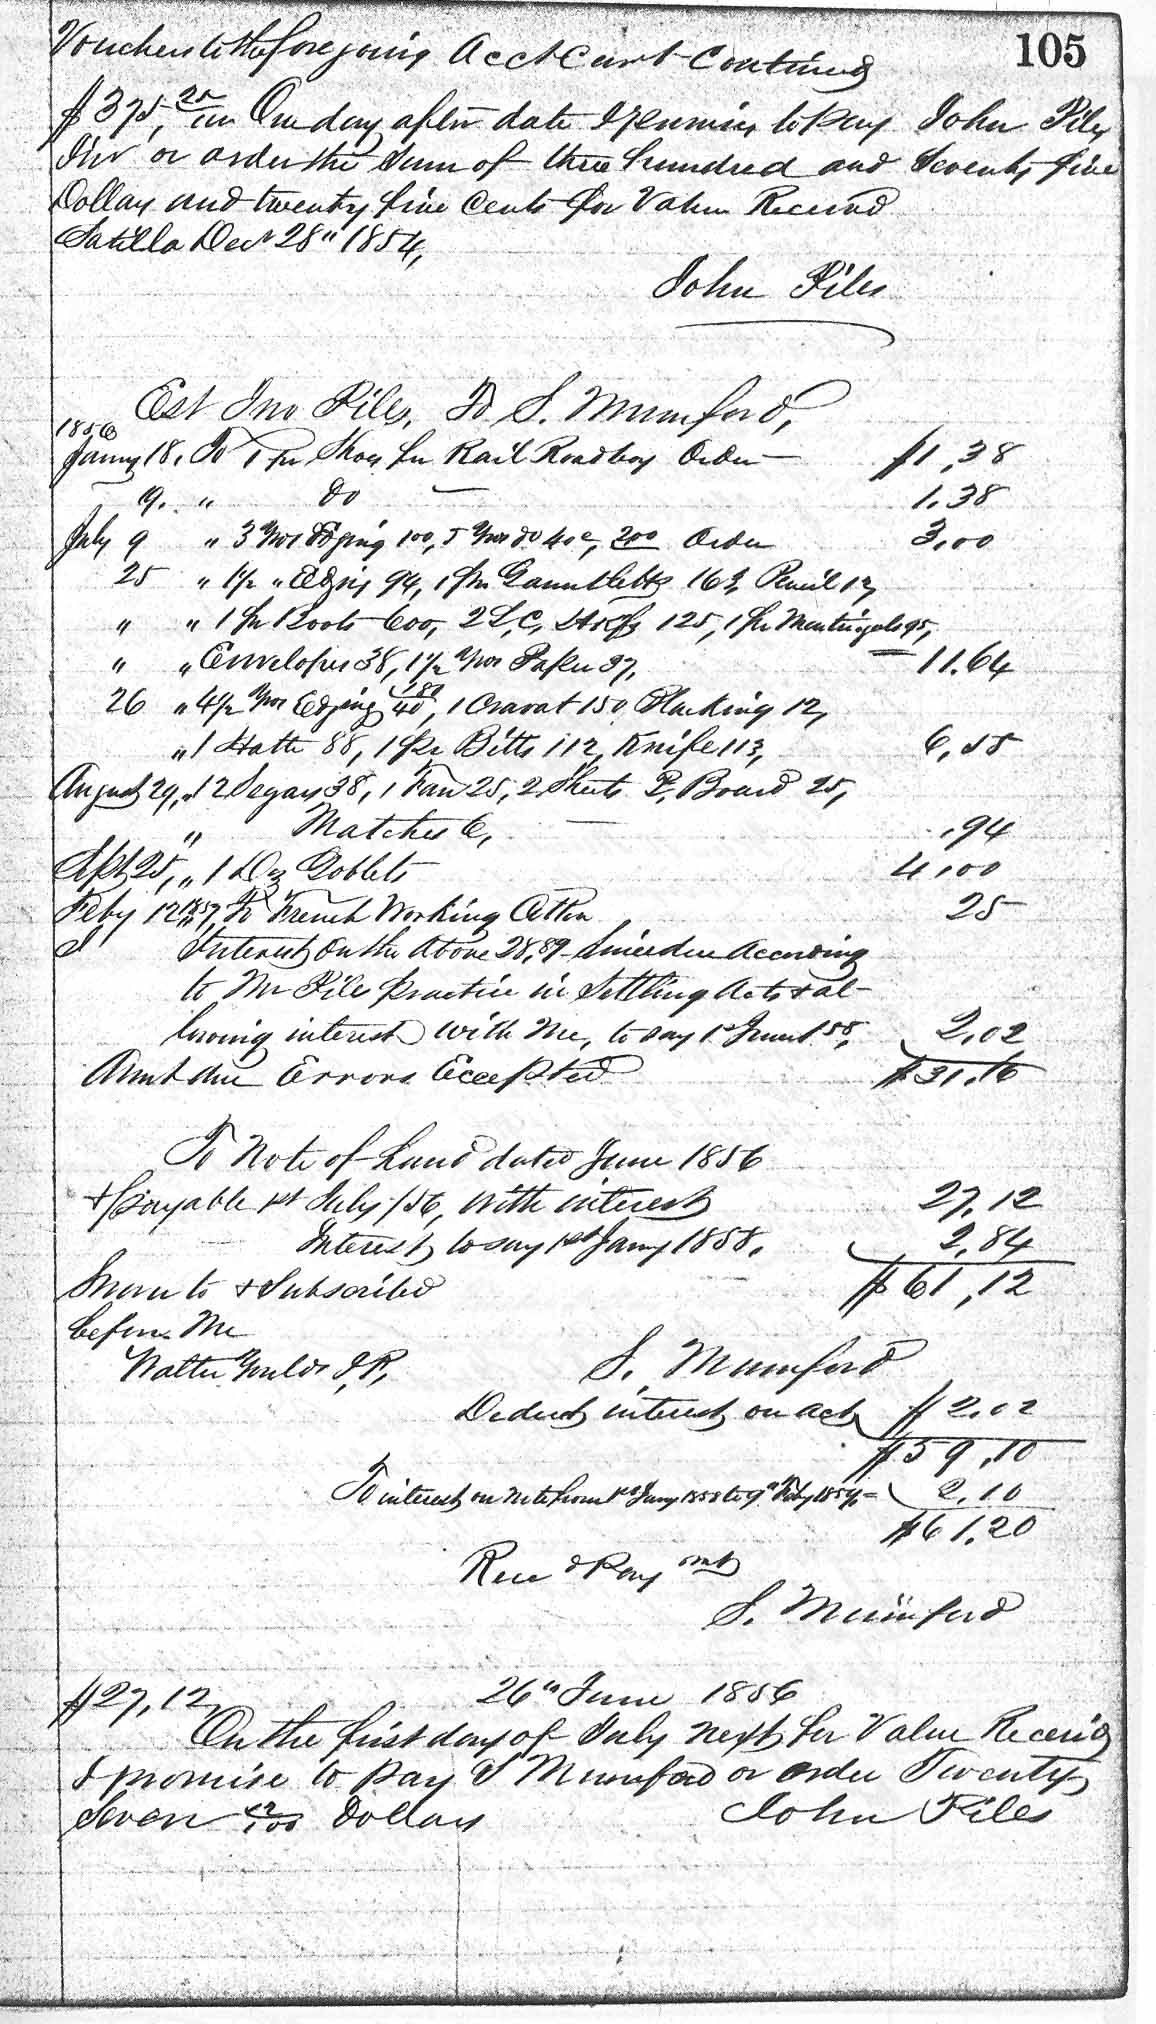 105
Vouchers to the foregoing Acct Curt Continued
$375, 25/100 One day after date I promise to pay John Piles
Jnr or order the Sum of three hundred and Seventy five
Dollars and twenty five Cents for Value Received
Satilla Decr 28" 1854,
John Piles
Est Jno Piles, To S. Mumford,
1856
Jany 18, To 1 pr Shoes for Rail Road boy Order — $1,38
9. " do — 1.38
July 9 " 3 Yds Edging 100, 5 Yds do 40c, 200 Order 3,00
25 " 1 1/2 " Edging 94, 1 pr Gauntletts 163, Pencil 12,
" " 1 pr Boots 600, 2 L, C, Hdkfs 125, 1 pr 95,
" " Envelopes 38, 1 1/2 Paper 37, — 11.64
26 " 4 1/2 Yds Edging 40 180, 1 Cravat 150, Blacking 12,
" 1 88, 1 pr Bitts 112, Knife 113, 6,55
August 29, " 12 Segars 38, 1 Fan 25, 2 Sheets P, Board 25,
" Matches 6, — .94
Sept 25, " 1 Dz Goblets 4,00
Feby 12 1857, To French Working Cotton 25
I Interest on the above 28,89 Since due According
to Mr Piles practice in Settling Acts & al-
lowing interest with Me, to say 1st 58, 2,02
Amt due Errors Excepted $31.16
To Note of hand dated June 1856
& payable 1st July /56, with interest 27,12
Interest to say 1st Jany 1858, 2,84
Sworn to & Subscribed $61,12
before Me
Walter J,P, S. Mumford
Deduct interest on act $2.02
$59,10
To interest on Note from 1st Jany 1858 to 9" Feby 1859 = 2.10
$61,20
Recd Payment
S. Mumford
$27,12 26" June 1856
On the first day of July next for Value Received
I promise to pay S Mumford or order Twenty
Seven 12/100 Dollars John Piles